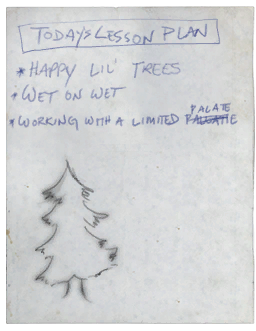 TODAY'S LESSON PLAN
*HAPPY LIL' TREES
*WET ON WET
*WORKING WITH A LIMITED PALATE